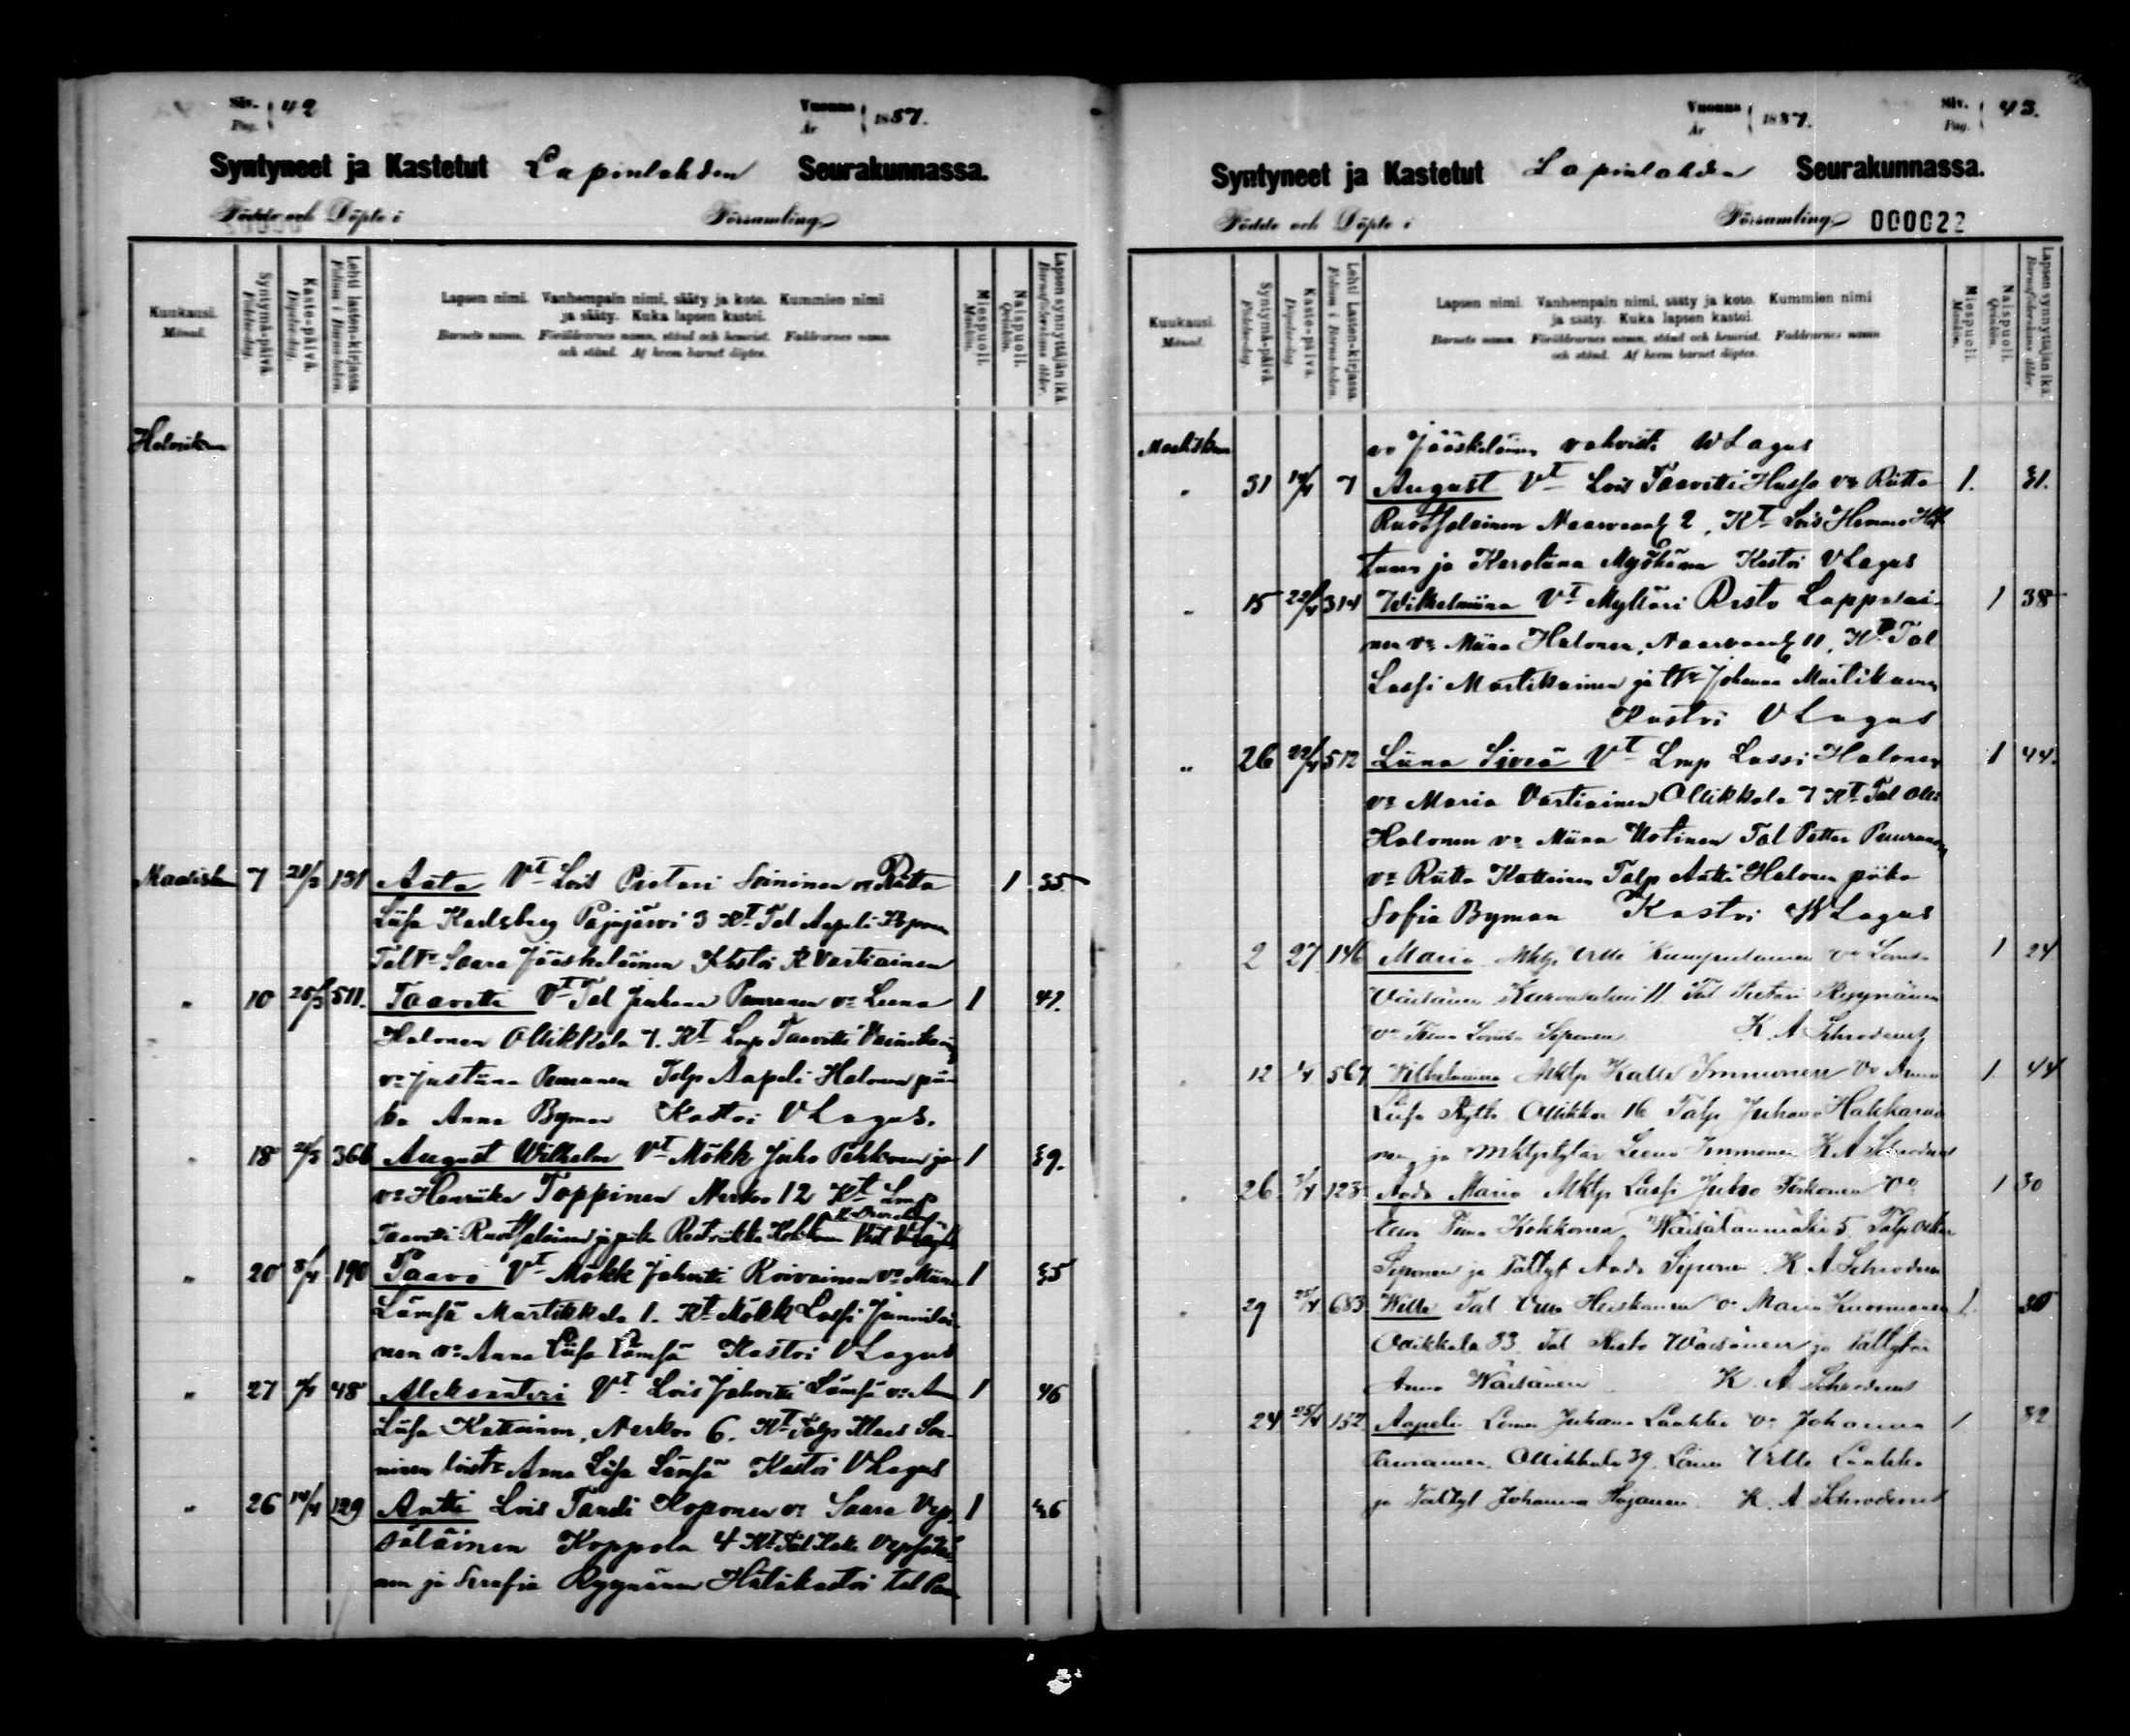 Siv. 42
Pag.
Vuonna 1887.
År
Syntyneet ja Kastetut Lapinlahden Seurakunnassa.
Födde och Döpte i Församling
Kuukausi.
Månad.
Syntymä-päivä
Födelse-dag.
Kaste-päivä.
Döpelse-dag.
Lehti lasten-kirjassa
Folium i Barna-boken.
Lapsen nimi. Vanhempain nimi, sääty ja koto. Kummien nimi
ja sääty. Kuka lapsen kastoi.
Barnets namn. Föräldrarnes namn, stånd och hemvist. Faddrarnes namn
och stånd. Af hvem barnet döptes.
Miespuoli.
Mankön.
Naispuoli.
Qvinkön.
Lapsen synnyttäjän ikä.
Barnaföderskans ålder.
Helmikuu
Maalisk 7 21/3 131 Aata Vt Lois Pietari Soininen vo Riitta 1 35
Liisa Karlsberg Pajujärvi 3 Kt Tal Aapeli Koponen
Talvo Saara Jääskeläinen Kastoi R Vartiainen
" 10 25/3 511. Taavetti Vt Tal Juhana Puuranen vo Leena 1 41.
Halonen Ollikkala 7. Kt Lmp Taavetti
vo Justiina Puuranen Talp Aapeli Halonen pii
ka Anna Byman Kastoi V Lagus.
" 18 366 August Wilhelm Vt Mökk Juho Pehkonen ja 1 39.
vo Henriika Toppinen Nerkoo 12 Kt Lmp
Taavetti Ruotsalainen ja piika
" 20 8/4 190 Paavo Vt Mökk Jahvetti Roivainen vo Miina 1 35
Lämsä Martikkala 1. Kt Mökk Lassi Janniläi
nen vo Anna Liisa Lämsä Kastoi V Lagus
" 27 48 Aleksanteri Vt Lois Jahvetti Lämsä vo Anna 1 46
Liisa Kattainen, Nerkoo 6. Kt Talp Klaes Soi
ninen loistr Anna Liisa Lämsä Kastoi V Lagus
" 26 14/4 129 Antti Lois Taneli Koponen vo Saara Vep 1 26
säläinen Koppola 4 Kt Tal Vepsäläi
nen ja Serafia Ryynänen Hätäkastoi
Vuonna 1887.
År
Siv. 43.
Pag.
Syntyneet ja Kastetut Lapinlahden Seurakunnassa.
Födde och Döpte i Församling 000022
Kuukausi.
Månad.
Syntymä-päivä
Födelse-dag.
Kaste-päivä.
Döpelse-dag.
Lehti Lasten-kirjassa.
Folium i Barna-boken.
Lapsen nimi. Vanhempain nimi, sääty ja koto. Kummien nimi
ja sääty. Kuka lapsen kastoi.
Barnets namn. Föräldrarnes namn, stånd och hemvist. Faddrarnes namn
och stånd. Af hvem barnet döptes.
Miespuoli.
Mankön.
Naispuoli.
Qvinkön.
Lapsen synnyttäjän ikä.
Barnaföderskans ålder.
Maalisk vo Jääskeläinen vahvisti W Lagus
" 31 7 August Vt Lois Taavetti Husso vo Riitta 1. 31.
Ruotsalainen 2, Kt Lois
ja Karoliina Myöhänen Kastoi V Lagus
" 15 22/4 314 Wilhelmiina Vt Mylläri Risto Lappalai- 1 38
nen vo Miina Halonen, 11, Kt Tal
Lassi Martikainen ja tr Johanna Martikainen
Kastoi V Lagus
" 26 22/4 512 Liina Siviä Vt Lmp Lassi Halonen 1 44.
vo Maria Vartiainen Ollikkala 7 Kt Tal Olli
Halonen vo Miina Uotinen Tal Petter Puuranen
vo Riitta Kattainen Talp Antti Halonen piika
Sofia Byman Kastoi W Lagus
2 27 146 Maria Mktp Ville Kumpulainen vo Lovisa 1 24
Väisänen 11 Tal Pietari Ryynänen
vo Lovisa Siponen K. A Schroderus
12 567 Vilhelmiina Mktp Kalle Immonen vo Anna 1. 44
Liisa Ollikka 16 Talp Juhana Hakkarai
nen ja mktptytär Leena Immonen K A Schroderus
26 123 Anda Maria Mktp Lassi Juho vo 1 30
Kokkonen Wäisälänmäki 5. Talp
Siponen ja Taltyt Siponen K. A Schroderus
29 25/4 683 Wille Tal Heiskanen vo Maria Kuosmanen 1. 30
Ollikkala 33. Tal Risto Wäisänen ja taltytär
Anna Wäisänen K. A. Schroderus
24 25/4 152 Aapeli Juhana Laakko vo Johanna 1. 32
Ollikkala 39. Ville Laakko
ja Taltyt Johanna K. A Schroderus